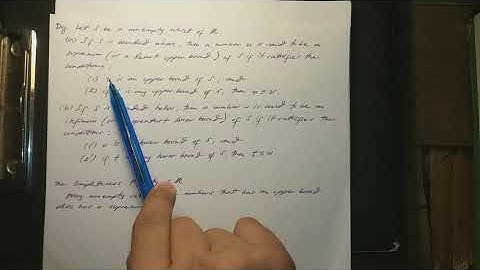 Def Let S be a nonempty subset of ℝ
(a) If S is bounded above, then a number u is said to be a
supremum (or a least upper bound) of S if it satisfies the
conditions:
(1) u is an upper bound of S, and
(2) if v is any upper bound of S, then u ≤ v.
(b) If S is bounded below, then a number w is said to be an
infimum (or a greatest lower bound) of S if it satisfies the
conditions:
(1') w is a lower bound of S, and
(2') if t is any lower bound of S, then t ≤ w.
The Completeness ℝ
Every nonempty numbers that has an upper bound
also has a supremum